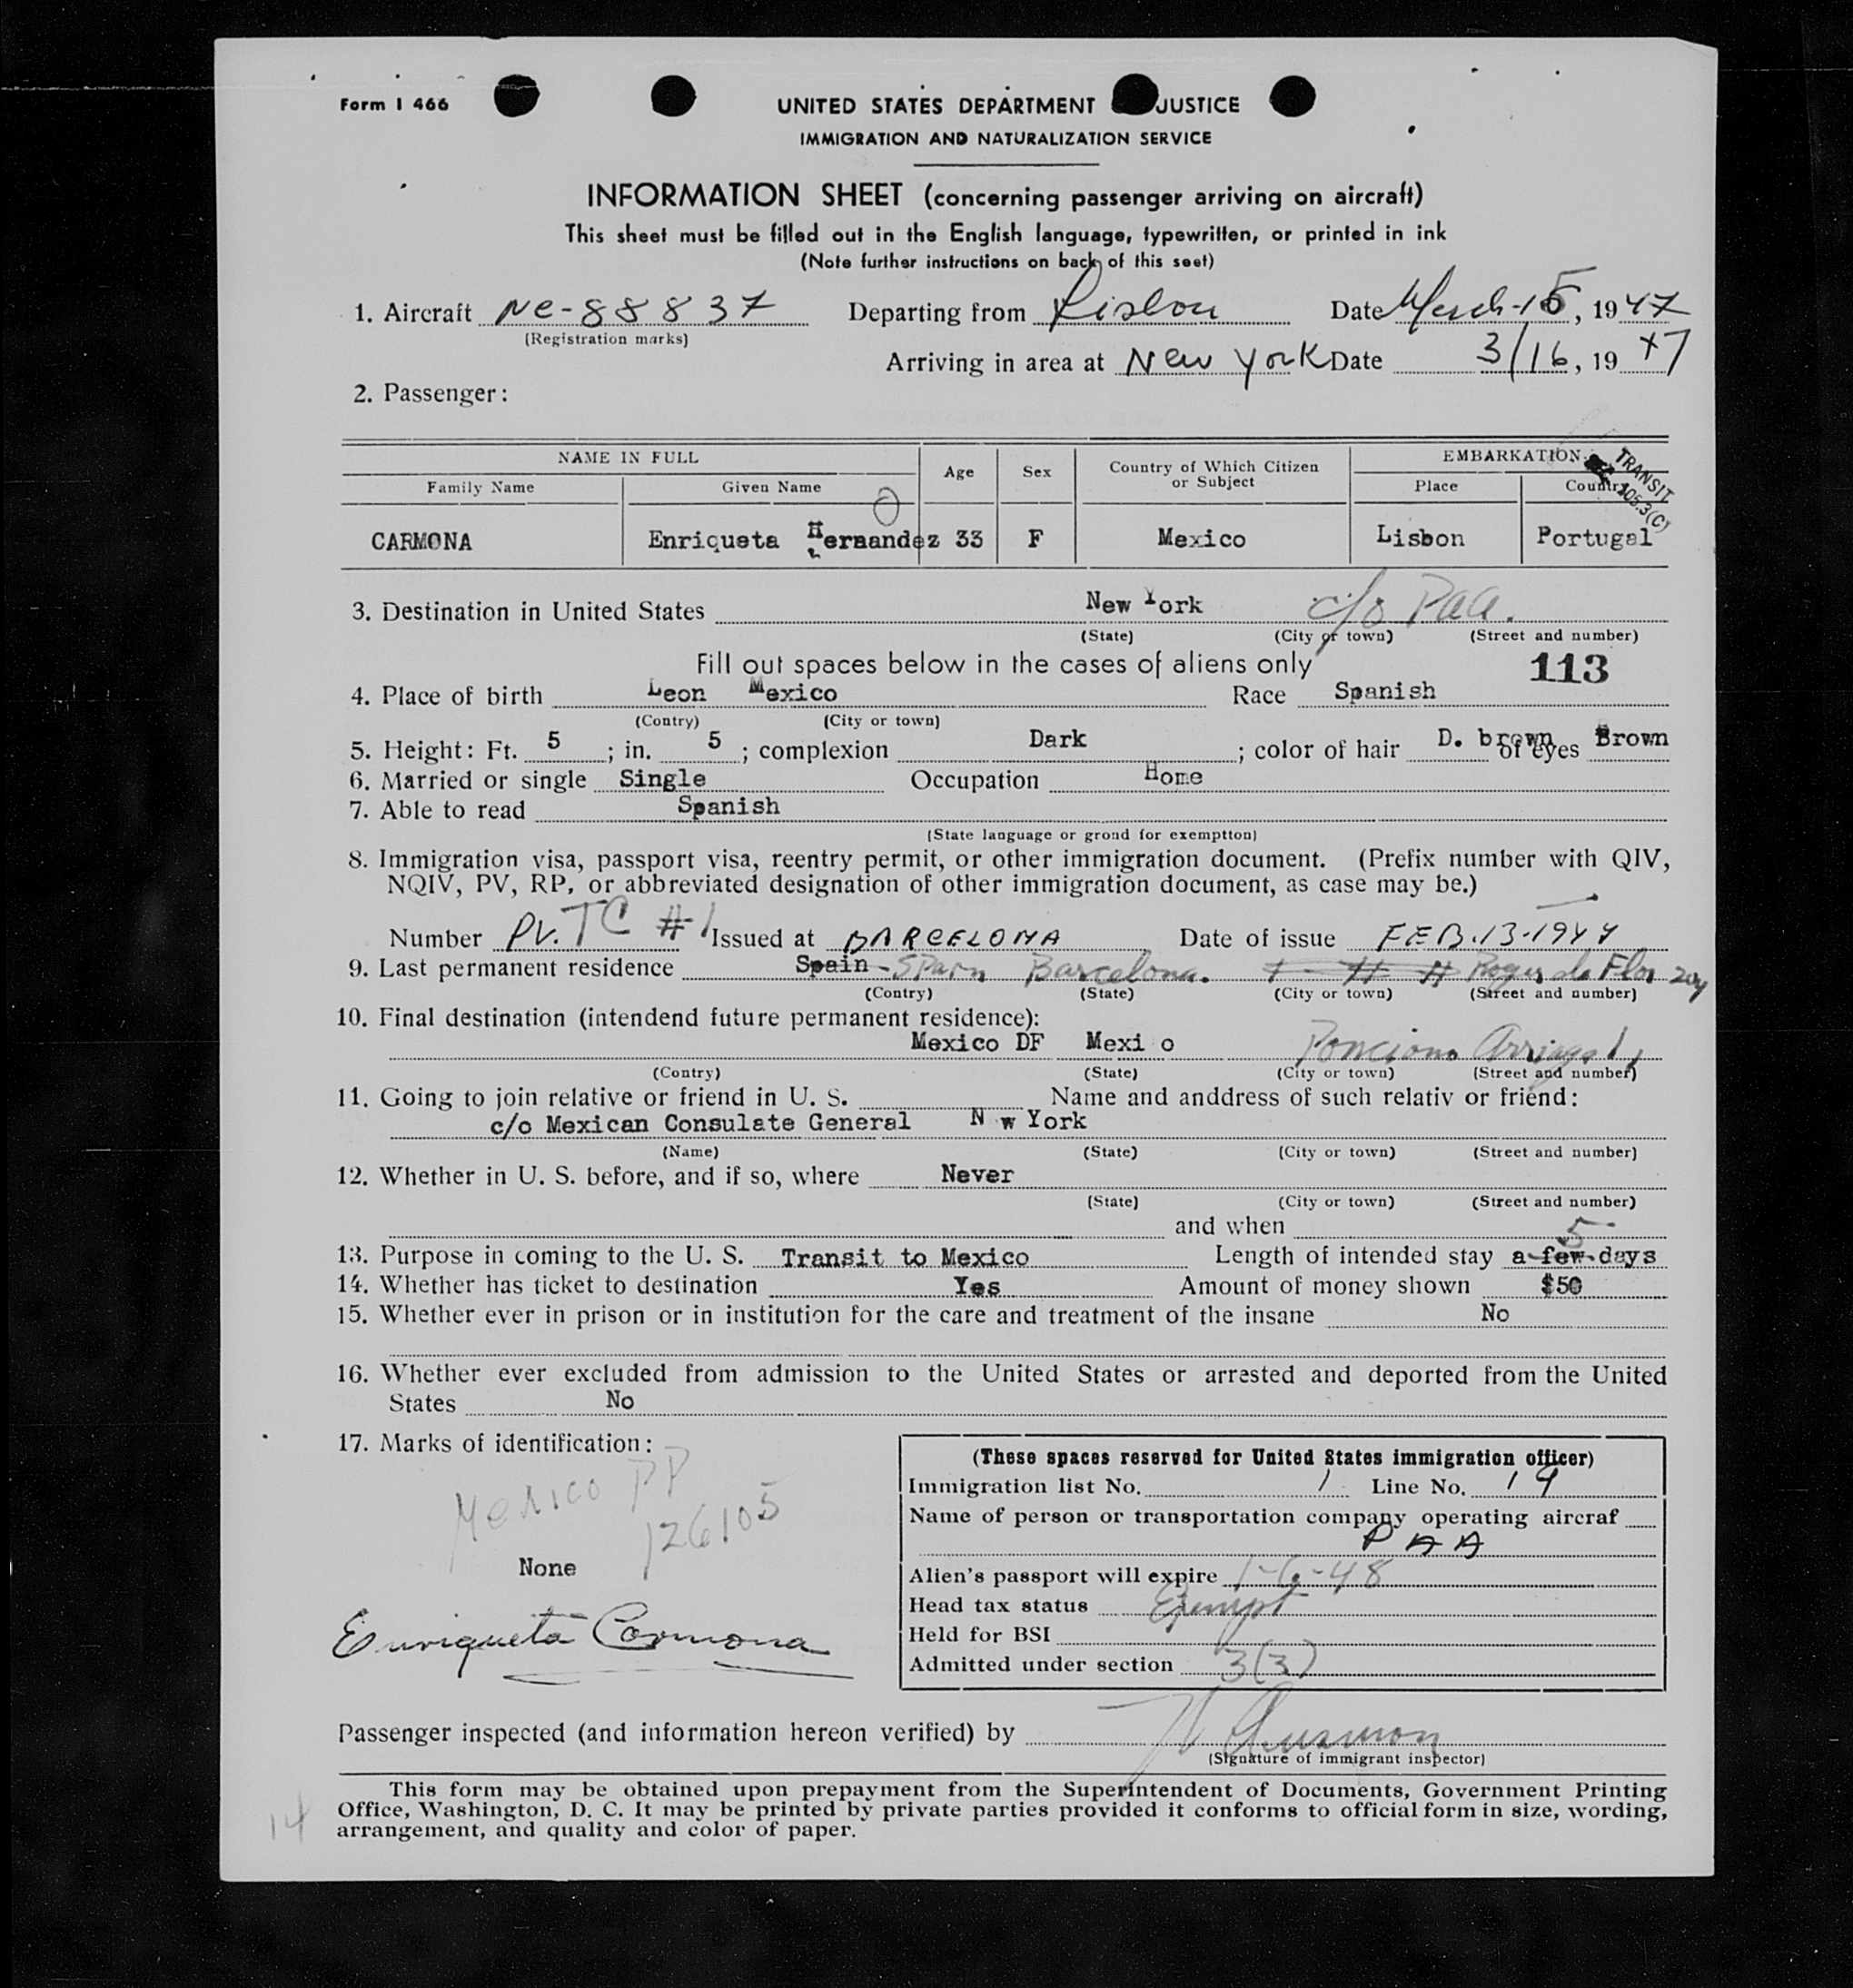 Form I 466
UNITED STATES DEPARTMENT JUSTICE
IMMIGRATION AND NATURALIZATION SERVICE
INFORMATION SHEET (concerning passenger arriving on aircraft)
This sheet must be filled out in the English language, typewritten, or printed in ink
(Note further instructions on back of this seet)
1. Aircraft NC-88837 Departing from Lisbon Date March-15, 1947
(Registration marks)
Arriving in area at New York Date 3/16, 1947
2. Passenger:
NAME IN FULL Age Sex Country of Which Citizen or Subject EMBARKATION
Family Name Given Name Place Country
TRANSIT
105.3(C)
CARMONA Enriqueta Hernandez 33 F Mexico Lisbon Portugal
3. Destination in United States New York c/o PAA.
(State) (City or town) (Street and number)
Fill out spaces below in the cases of aliens only 113
4. Place of birth Leon Mexico Race Spanish
(Contry) (City or town)
5. Height: Ft. 5 ; in. 5 ; complexion Dark ; color of hair D. brown of eyes Brown
6. Married or single Single Occupation Home
7. Able to read Spanish
(State language or grond for exemptton)
8. Immigration visa, passport visa, reentry permit, or other immigration document. (Prefix number with QIV,
NQIV, PV, RP, or abbreviated designation of other immigration document, as case may be.)
Number PV. TC #1 Issued at BARCELONA Date of issue FEB.13.1947
9. Last permanent residence Spain - Spain Barcelona. Roger de Flor 204
(Contry) (State) (City or town) (Street and number)
10. Final destination (intendend future permanent residence):
Mexico DF Mexi o Ponciano Arriaga 1,
(Contry) (State) (City or town) (Street and number)
11. Going to join relative or friend in U. S. Name and anddress of such relativ or friend:
c/o Mexican Consulate General N w York
(Name) (State) (City or town) (Street and number)
12. Whether in U. S. before, and if so, where Never
(State) (City or town) (Street and number)
and when
13. Purpose in coming to the U. S. Transit to Mexico Length of intended stay a few 5 days
14. Whether has ticket to destination Yes Amount of money shown $50
15. Whether ever in prison or in institution for the care and treatment of the insane No
16. Whether ever excluded from admission to the United States or arrested and deported from the United
States No
17. Marks of identification:
Mexico PP
126105
None
Enriqueta Carmona
(These spaces reserved for United States immigration officer)
Immigration list No. 1 Line No. 19
Name of person or transportation company operating aircraf
PAA
Alien's passport will expire 1-6-48
Head tax status Exempt
Held for BSI
Admitted under section 3(3)
Passenger inspected (and information hereon verified) by
(Signature of immigrant inspector)
This form may be obtained upon prepayment from the Superintendent of Documents, Government Printing
Office, Washington, D. C. It may be printed by private parties provided it conforms to official form in size, wording,
arrangement, and quality and color of paper.
14